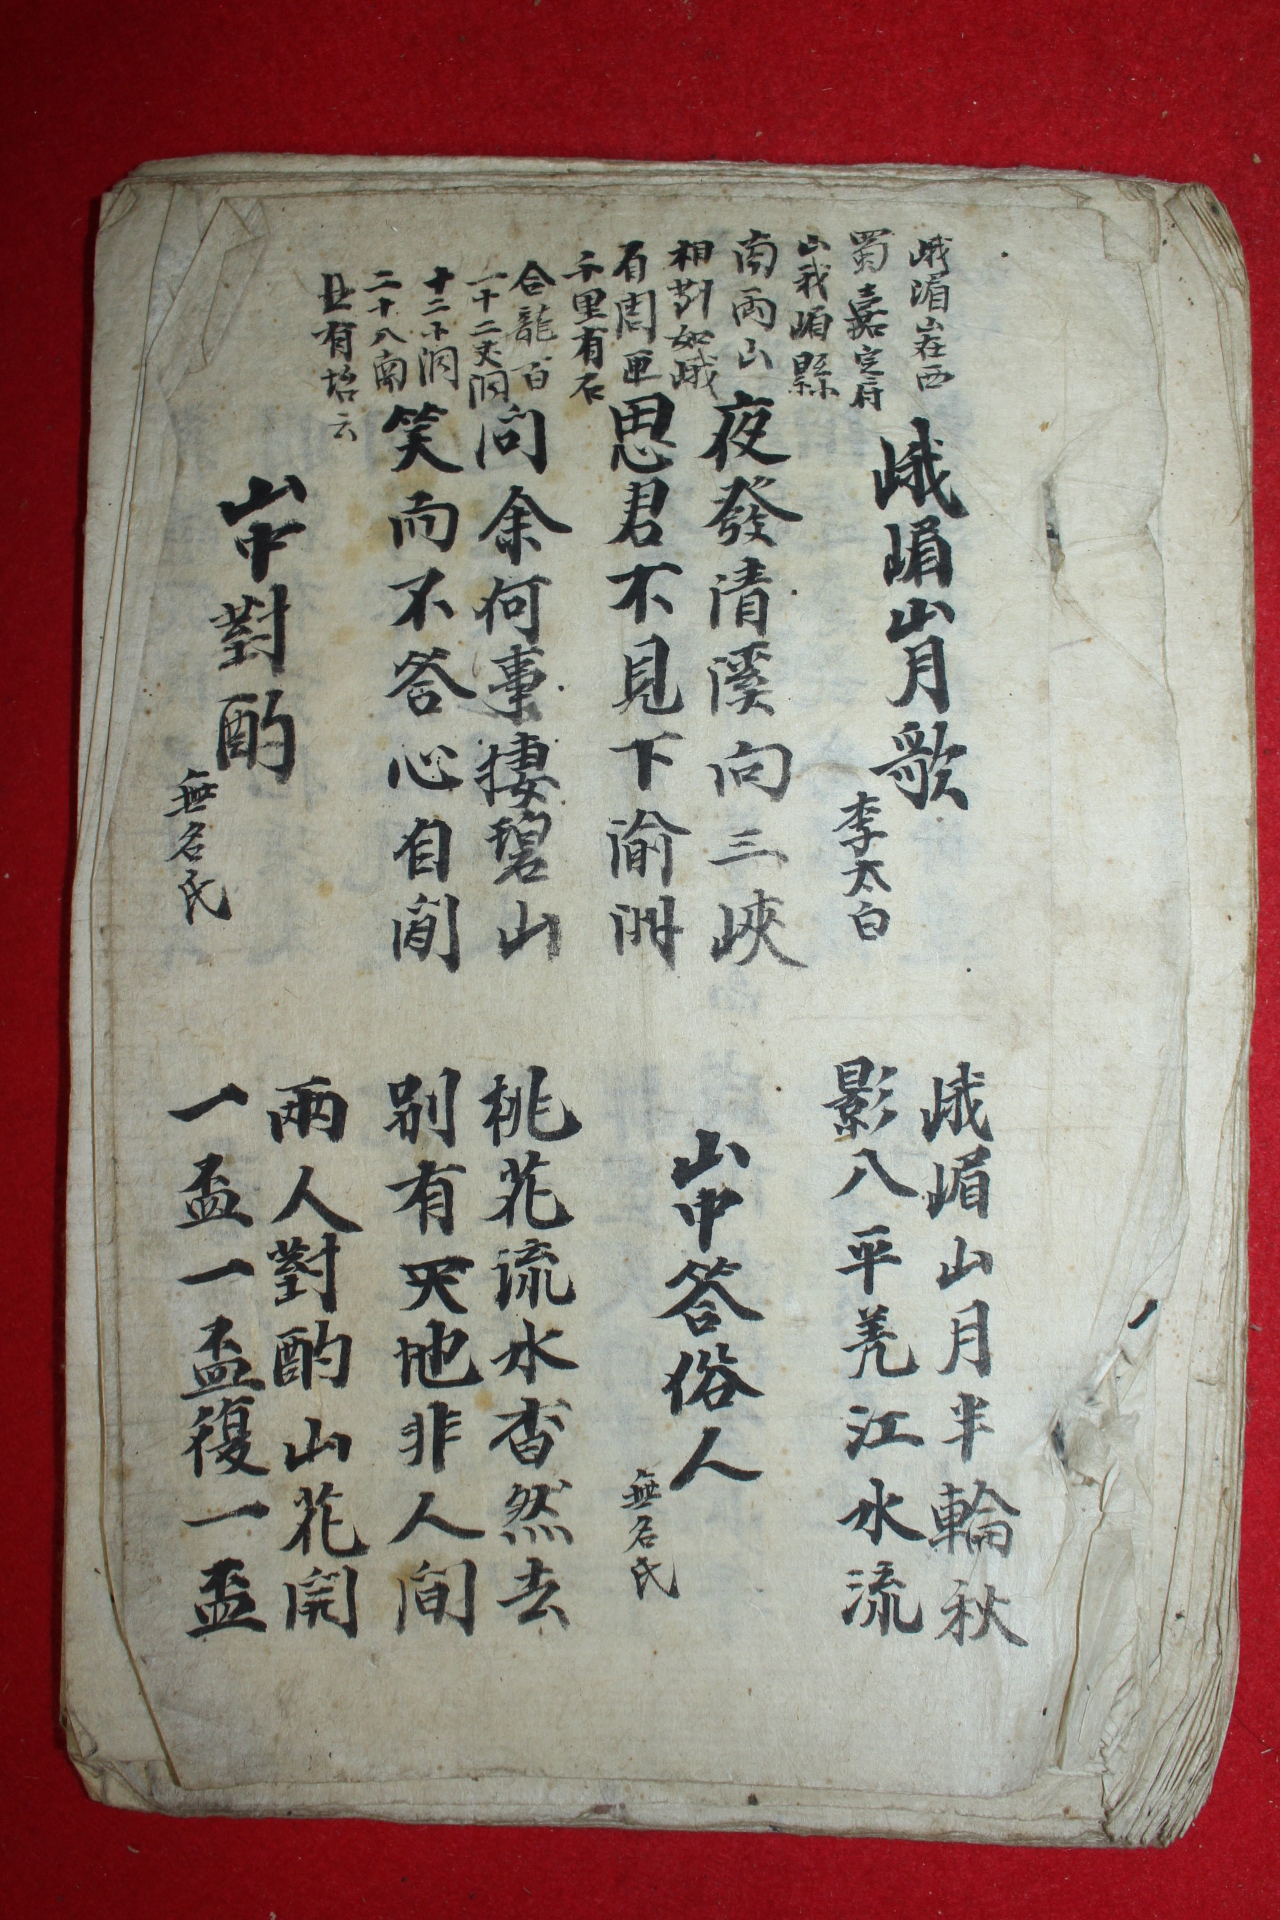 峨嵋山在西
蜀嘉定府
山我嵋縣
南兩山
相對如峨
有周匝
千里有石
合龍百
一十二丈洞
十二小洞
二十八南
且有坮云
峨嵋山月歌
李太白
峨嵋山月半輪秋
影八平羌江水流
夜發清溪向三峽
思君不見下渝洲
山中答俗人
無名氏
問余何事捿碧山
笑而不答心自閒
桃花流水杳然去
別有天地非人間
山中對酌
無名氏
兩人對酌山花開
一盃一盃復一盃